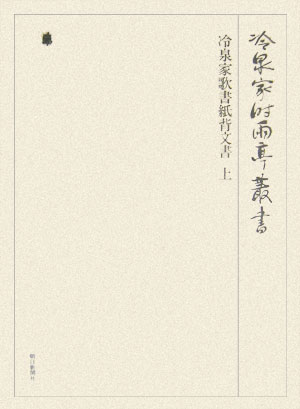 冷泉家時雨亭叢書
冷泉家歌書紙背文書 上
朝日新聞社